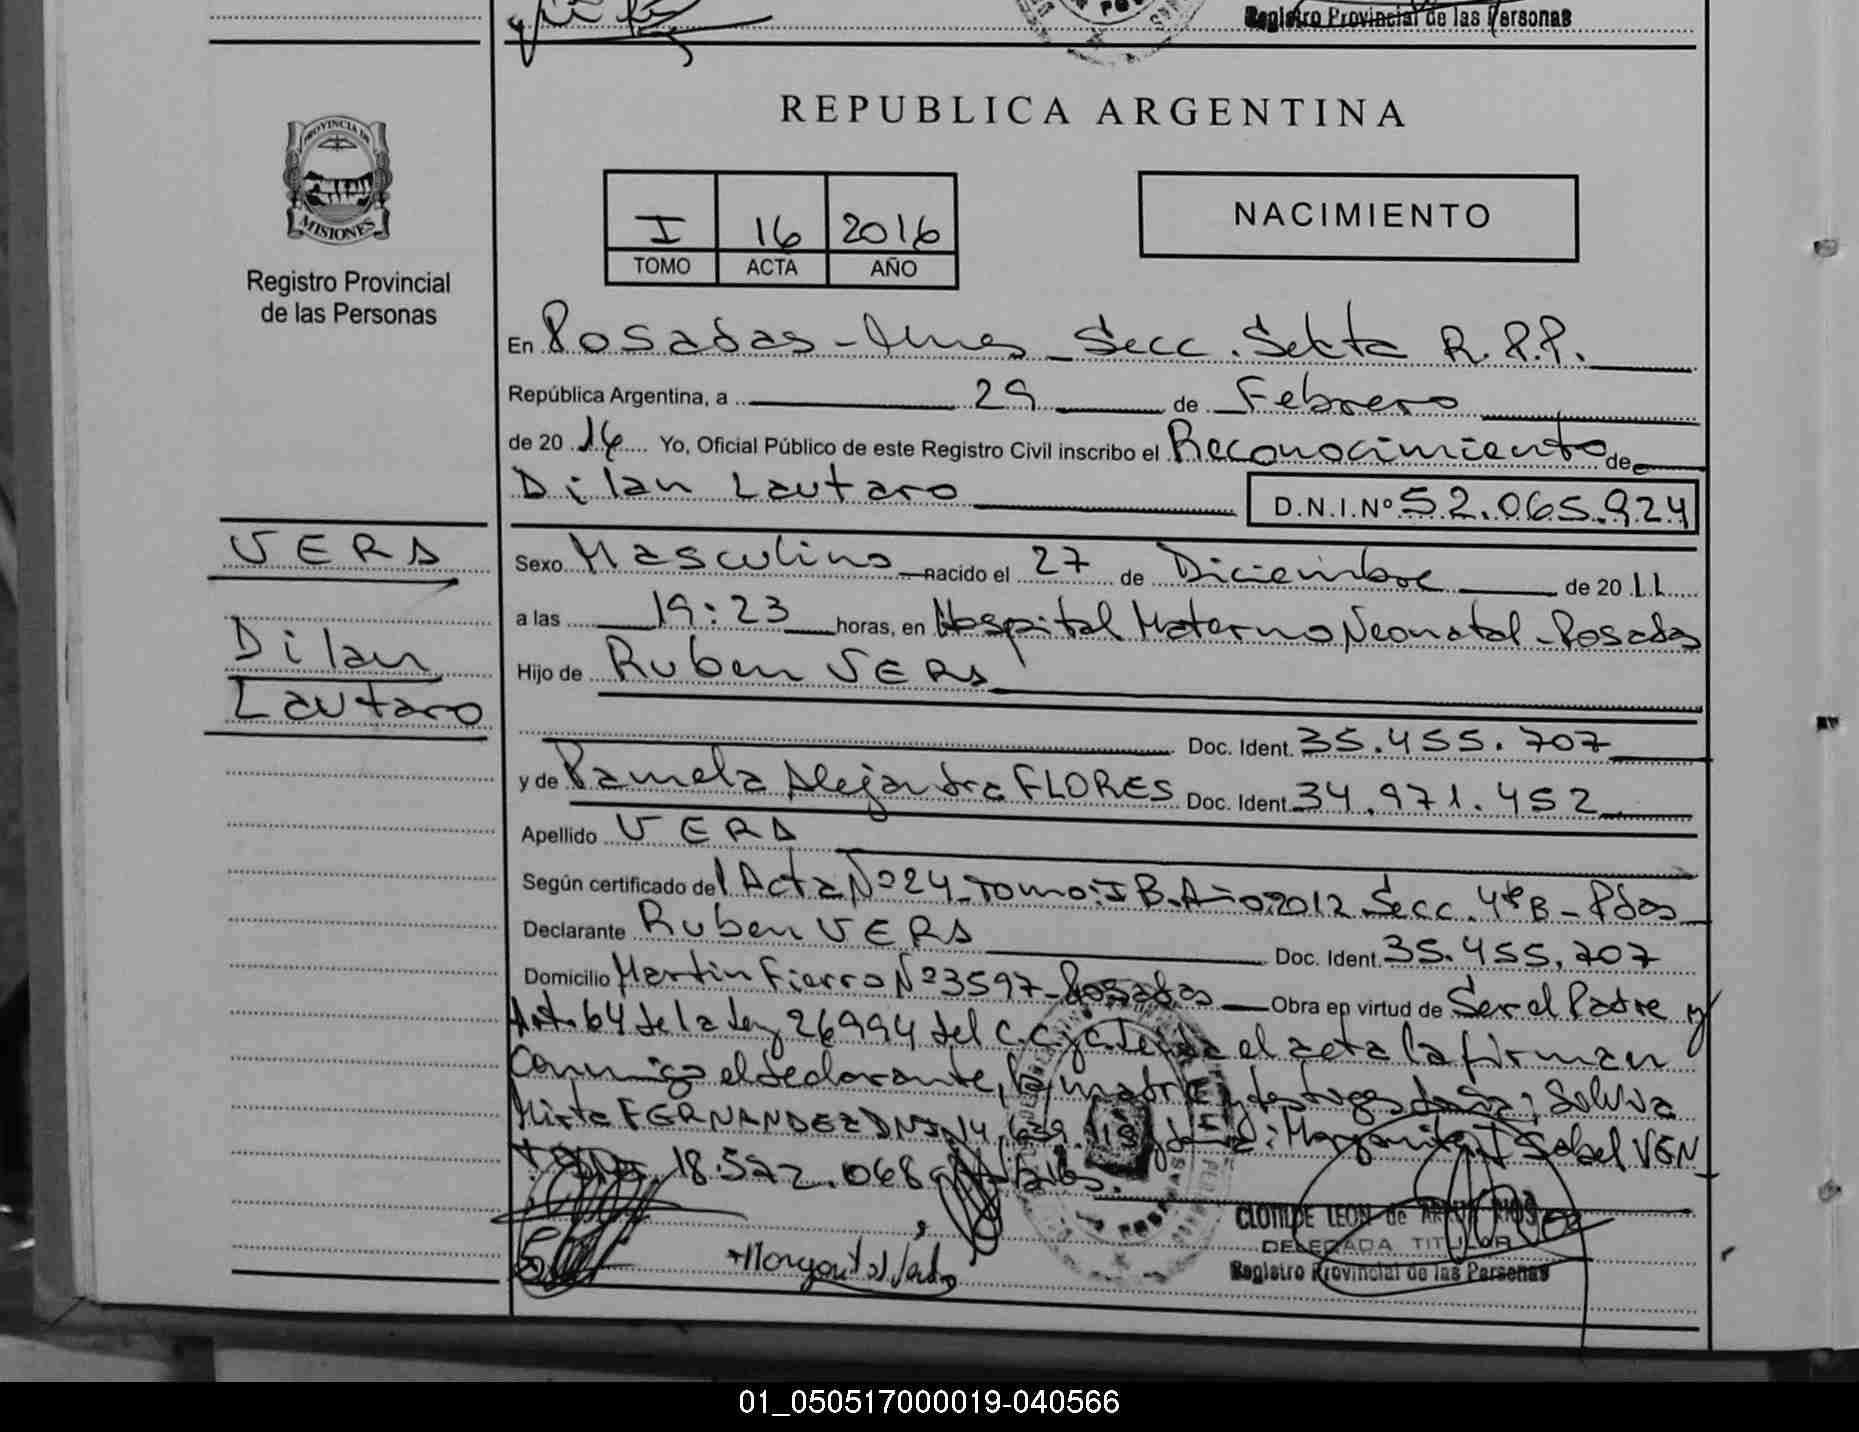 Registro Provincial de las Personas
REPUBLICA ARGENTINA
PROVINCIA DE
MISIONES
Registro Provincial
de las Personas
I 16 2016
TOMO ACTA AÑO
NACIMIENTO
En Posadas - Mnes - Secc. Sekta R.P.P.
República Argentina, a 29 de Febrero
de 20 16 Yo, Oficial Público de este Registro Civil inscribo el Reconocimiento de
Dilan Lautaro D.N.I.Nº 52.065.924
VERA
Dilan
Lautaro
Sexo Masculino nacido el 27 de Diciembre de 20 11
a las 19:23 horas, en Hospital Materno Neonatal - Posadas
Hijo de Ruben VERA
Doc. Ident. 35.455.707
y de Pamela Alejandra FLORES Doc. Ident. 34.971.452
Apellido VERA
Según certificado del Acta Nº 24 - Tomo: I B. Año 2012 Secc. 4ta B - Pdas
Declarante Ruben VERA Doc. Ident. 35.455.707
Domicilio Martin Fierro Nº 3597 - Posadas Obra en virtud de Ser el Padre y
Art. 64 de la Ley 26994 del C.C. y C. Leida el acta la firman
Conmigo el declarante, la madre y testigos doña: Silvia
Mirta FERNANDEZ DNI 14.639.119 y doña: Margarita Isabel VEN
18.572.068
CLOTILDE LEON de
DELEGADA TITULAR
Registro Provincial de las Personas
01_050517000019-040566